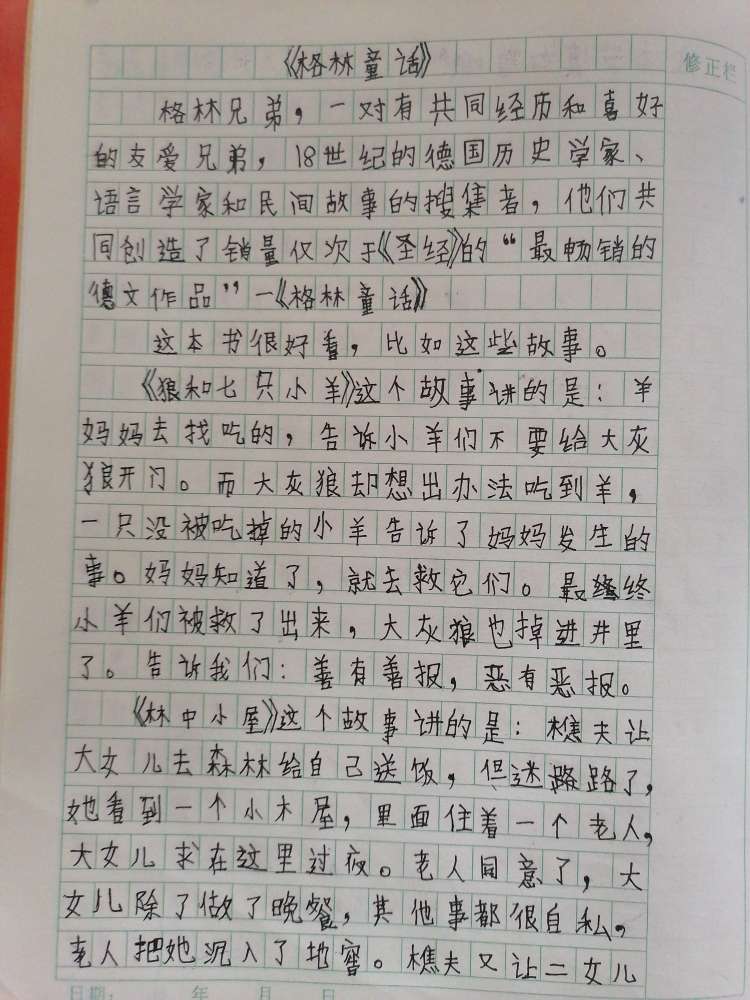 《格林童话》
修正栏
格林兄弟，一对有共同经历和喜好
的友爱兄弟，18世纪的德国历史学家、
语言学家和民间故事的搜集者，他们共
同创造了销量仅次于《圣经》的“最畅销的
德文作品”—《格林童话》
这本书很好看，比如这些故事。
《狼和七只小羊》这个故事讲的是：羊
妈妈去找吃的，告诉小羊们不要给大灰
狼开门。而大灰狼却想出办法吃到羊，
一只没被吃掉的小羊告诉了妈妈发生的
事。妈妈知道了，就去救它们。最终
小羊们被救了出来，大灰狼也掉进井里
了。告诉我们：善有善报，恶有恶报。
《林中小屋》这个故事讲的是：樵夫让
大女儿去森林给自己送饭，但迷路了，
她看到一个小木屋，里面住着一个老人，
大女儿求在这里过夜。老人同意了，大
女儿除了做了晚餐，其他事都很自私，
老人把她沉入了地窖。樵夫又让二女儿
日期： 年 月 日